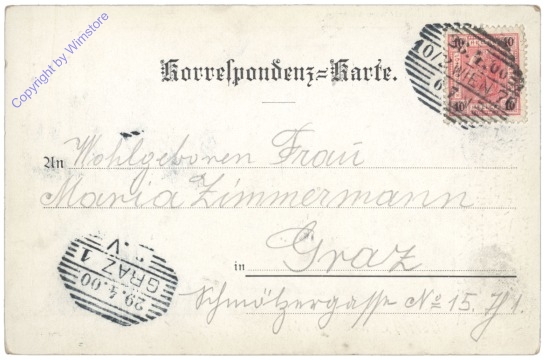 Copyright by Wimstore
Korrespondenz=Karte.
10 10
10 10
WIEN
00
An Wohlgeboren Frau
Maria Zimmermann
in Graz
Schmölzergasse No 15. I
GRAZ 1
29.4.00
V